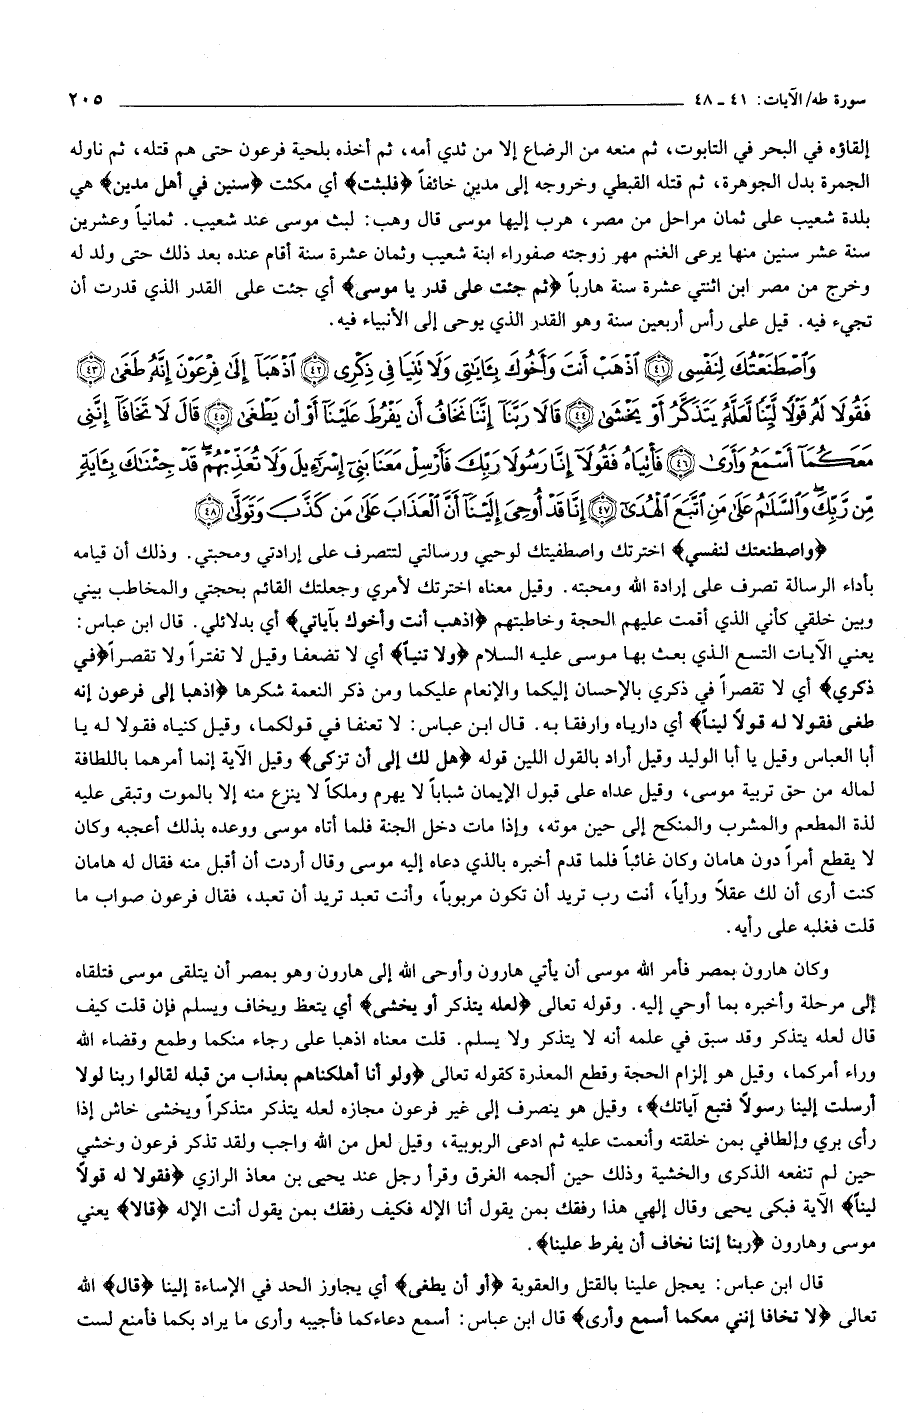 سورة طه/ الآيات: ٤١ ـ ٤٨ ٢٠٥
إلقاؤه في البحر في التابوت، ثم منعه من الرضاع إلا من ثدي أمه، ثم أخذه بلحية فرعون حتى هم قتله، ثم ناوله
الجمرة بدل الجوهرة، ثم قتله القبطي وخروجه إلى مدين خائفاً ﴿فلبثت﴾ أي مكثت ﴿سنين في أهل مدين﴾ هي
بلدة شعيب على ثمان مراحل من مصر، هرب إليها موسى قال وهب: لبث موسى عند شعيب. ثمانياً وعشرين
سنة عشر سنين منها يرعى الغنم مهر زوجته صفوراء ابنة شعيب وثمان عشرة سنة أقام عنده بعد ذلك حتى ولد له
وخرج من مصر ابن اثنتي عشرة سنة هارباً ﴿ثم جئت على قدر يا موسى﴾ أي جئت على القدر الذي قدرت أن
تجيء فيه. قيل على رأس أربعين سنة وهو القدر الذي يوحى إلى الأنبياء فيه.
وَٱصْطَنَعْتُكَ لِنَفْسِى ﴿٤١﴾ ٱذْهَبْ أَنتَ وَأَخُوكَ بِـَٔايَـٰتِى وَلَا تَنِيَا فِى ذِكْرِى ﴿٤٢﴾ ٱذْهَبَآ إِلَىٰ فِرْعَوْنَ إِنَّهُۥ طَغَىٰ ﴿٤٣﴾
فَقُولَا لَهُۥ قَوْلًا لَّيِّنًا لَّعَلَّهُۥ يَتَذَكَّرُ أَوْ يَخْشَىٰ ﴿٤٤﴾ قَالَا رَبَّنَآ إِنَّنَا نَخَافُ أَن يَفْرُطَ عَلَيْنَآ أَوْ أَن يَطْغَىٰ ﴿٤٥﴾ قَالَ لَا تَخَافَآ إِنَّنِى
مَعَكُمَآ أَسْمَعُ وَأَرَىٰ ﴿٤٦﴾ فَأْتِيَاهُ فَقُولَآ إِنَّا رَسُولَا رَبِّكَ فَأَرْسِلْ مَعَنَا بَنِىٓ إِسْرَٰٓءِيلَ وَلَا تُعَذِّبْهُمْ ۖ قَدْ جِئْنَـٰكَ بِـَٔايَةٍ
مِّن رَّبِّكَ ۖ وَٱلسَّلَـٰمُ عَلَىٰ مَنِ ٱتَّبَعَ ٱلْهُدَىٰٓ ﴿٤٧﴾ إِنَّا قَدْ أُوحِىَ إِلَيْنَآ أَنَّ ٱلْعَذَابَ عَلَىٰ مَن كَذَّبَ وَتَوَلَّىٰ ﴿٤٨﴾
﴿واصطنعتك لنفسي﴾ اخترتك واصطفيتك لوحيي ورسالتي لتتصرف على إرادتي ومحبتي. وذلك أن قيامه
بأداء الرسالة تصرف على إرادة الله ومحبته. وقيل معناه اخترتك لأمري وجعلتك القائم بحجتي والمخاطب بيني
وبين خلقي كأني الذي أقمت عليهم الحجة وخاطبتهم ﴿اذهب أنت وأخوك بآياتي﴾ أي بدلائلي. قال ابن عباس:
يعني الآيات التسع الذي بعث بها موسى عليه السلام ﴿ولا تنيا﴾ أي لا تضعفا وقيل لا تفتراً ولا تقصراً ﴿في
ذكري﴾ أي لا تقصراً في ذكري بالإحسان إليكما والإنعام عليكما ومن ذكر النعمة شكرها ﴿اذهبا إلى فرعون إنه
طغى فقولا له قولاً ليناً﴾ أي دارياه وارفقا به. قال ابن عباس: لا تعنفا في قولكما، وقيل كنياه فقولا له يا
أبا العباس وقيل يا أبا الوليد وقيل أراد بالقول اللين قوله ﴿هل لك إلى أن تزكى﴾ وقيل الآية إنما أمرهما باللطافة
لماله من حق تربية موسى، وقيل عداه على قبول الإيمان شباباً لا يهرم وملكاً لا ينزع منه إلا بالموت وتبقى عليه
لذة المطعم والمشرب والمنكح إلى حين موته، وإذا مات دخل الجنة فلما أتاه موسى ووعده بذلك أعجبه وكان
لا يقطع أمراً دون هامان وكان غائباً فلما قدم أخبره بالذي دعاه إليه موسى وقال أردت أن أقبل منه فقال له هامان
كنت أرى أن لك عقلاً ورأياً، أنت رب تريد أن تكون مربوباً، وأنت تعبد تريد أن تعبد، فقال فرعون صواب ما
قلت فغلبه على رأيه.
وكان هارون بمصر فأمر الله موسى أن يأتي هارون وأوحى الله إلى هارون وهو بمصر أن يتلقى موسى فتلقاه
إلى مرحلة وأخبره بما أوحي إليه. وقوله تعالى ﴿لعله يتذكر أو يخشى﴾ أي يتعظ ويخاف ويسلم فإن قلت كيف
قال لعله يتذكر وقد سبق في علمه أنه لا يتذكر ولا يسلم. قلت معناه اذهبا على رجاء منكما وطمع وقضاء الله
وراء أمركما، وقيل هو إلزام الحجة وقطع المعذرة كقوله تعالى ﴿ولو أنا أهلكناهم بعذاب من قبله لقالوا ربنا لولا
أرسلت إلينا رسولاً فتبع آياتك﴾، وقيل هو ينصرف إلى غير فرعون مجازه لعله يتذكر متذكراً ويخشى خاش إذا
رأى بري وإلطافي بمن خلقته وأنعمت عليه ثم ادعى الربوبية، وقيل لعل من الله واجب ولقد تذكر فرعون وخشي
حين لم تنفعه الذكرى والخشية وذلك حين ألجمه الغرق وقرأ رجل عند يحيى بن معاذ الرازي ﴿فقولا له قولاً
ليناً﴾ الآية فبكى يحيى وقال إلهي هذا رفقك بمن يقول أنا الإله فكيف رفقك بمن يقول أنت الإله ﴿قالا﴾ يعني
موسى وهارون ﴿ربنا إننا نخاف أن يفرط علينا﴾.
قال ابن عباس: يعجل علينا بالقتل والعقوبة ﴿أو أن يطغى﴾ أي يجاوز الحد في الإساءة إلينا ﴿قال﴾ الله
تعالى ﴿لا تخافا إنني معكما أسمع وأرى﴾ قال ابن عباس: أسمع دعاءكما فأجيبه وأرى ما يراد بكما فأمنع لست